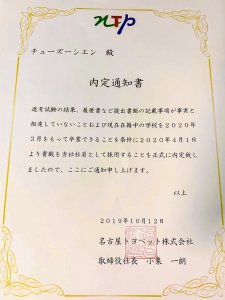 NTP
チューズーシエン 殿
内定通知書
選考試験の結果、履歴書など提出書類の記載事項が事実と
相違していないことおよび現在在籍中の学校を2020年
3月をもって卒業できることを条件に2020年4月1日
より貴殿を当社社員として採用することを正式に内定致し
ましたので、ここにご通知申し上げます。
以上
2019年10月12日
名古屋トヨペット株式会社
取締役社長 小栗 一朗